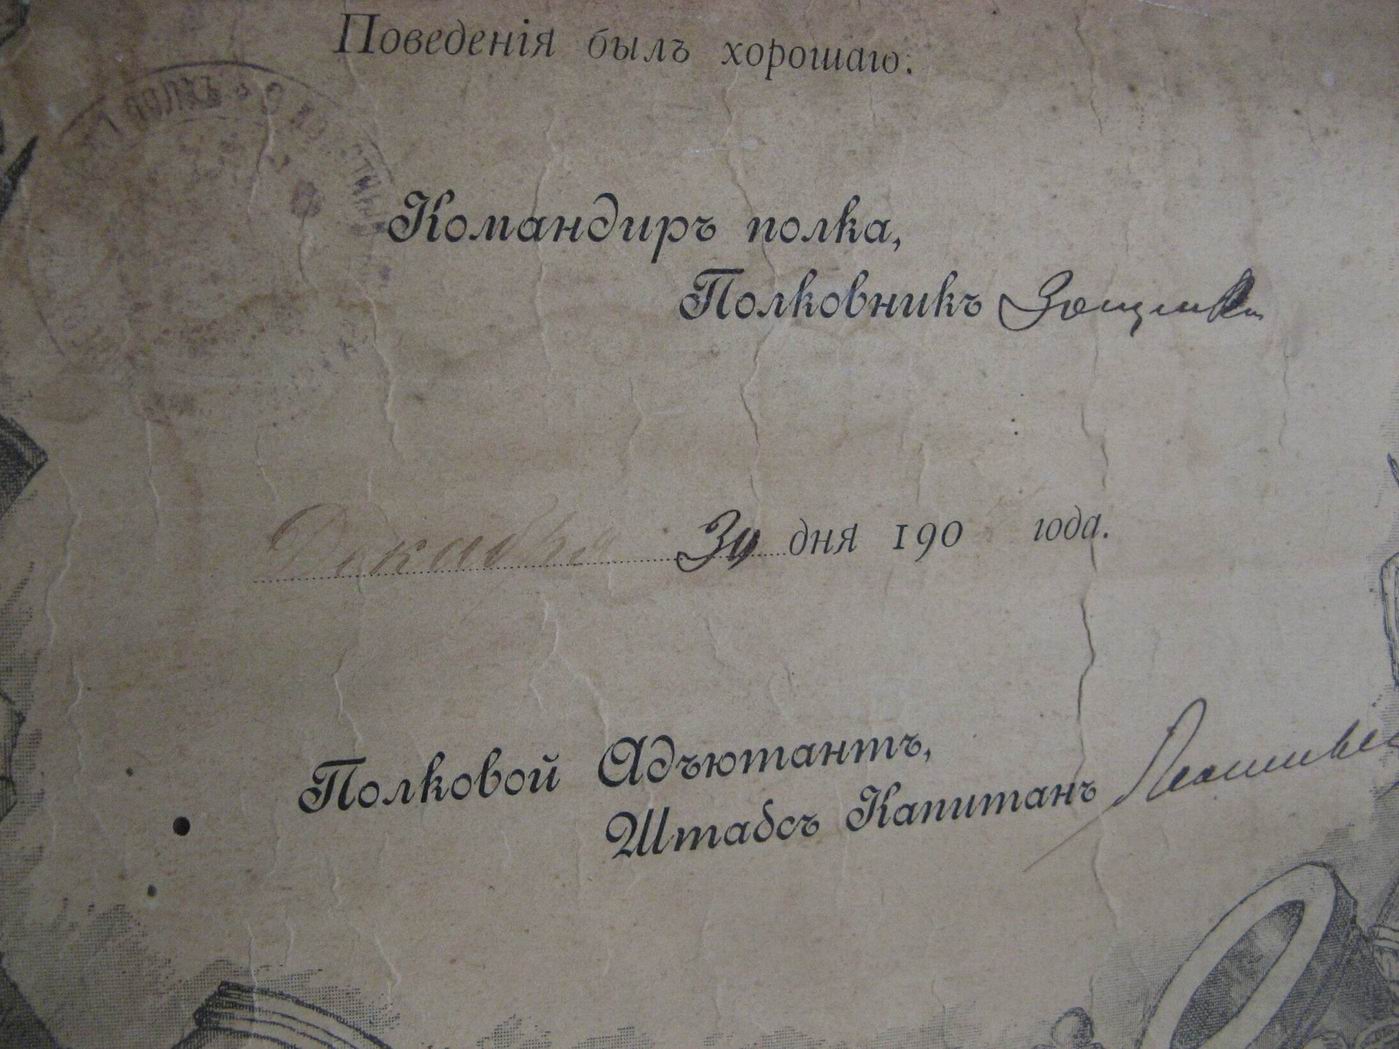 Поведенія былъ хорошаго.
ПОЛКЪ
Командиръ полка,
Полковникъ
Декабря 30 дня 190 года.
Полковой Адъютантъ,
Штабсъ Капитанъ